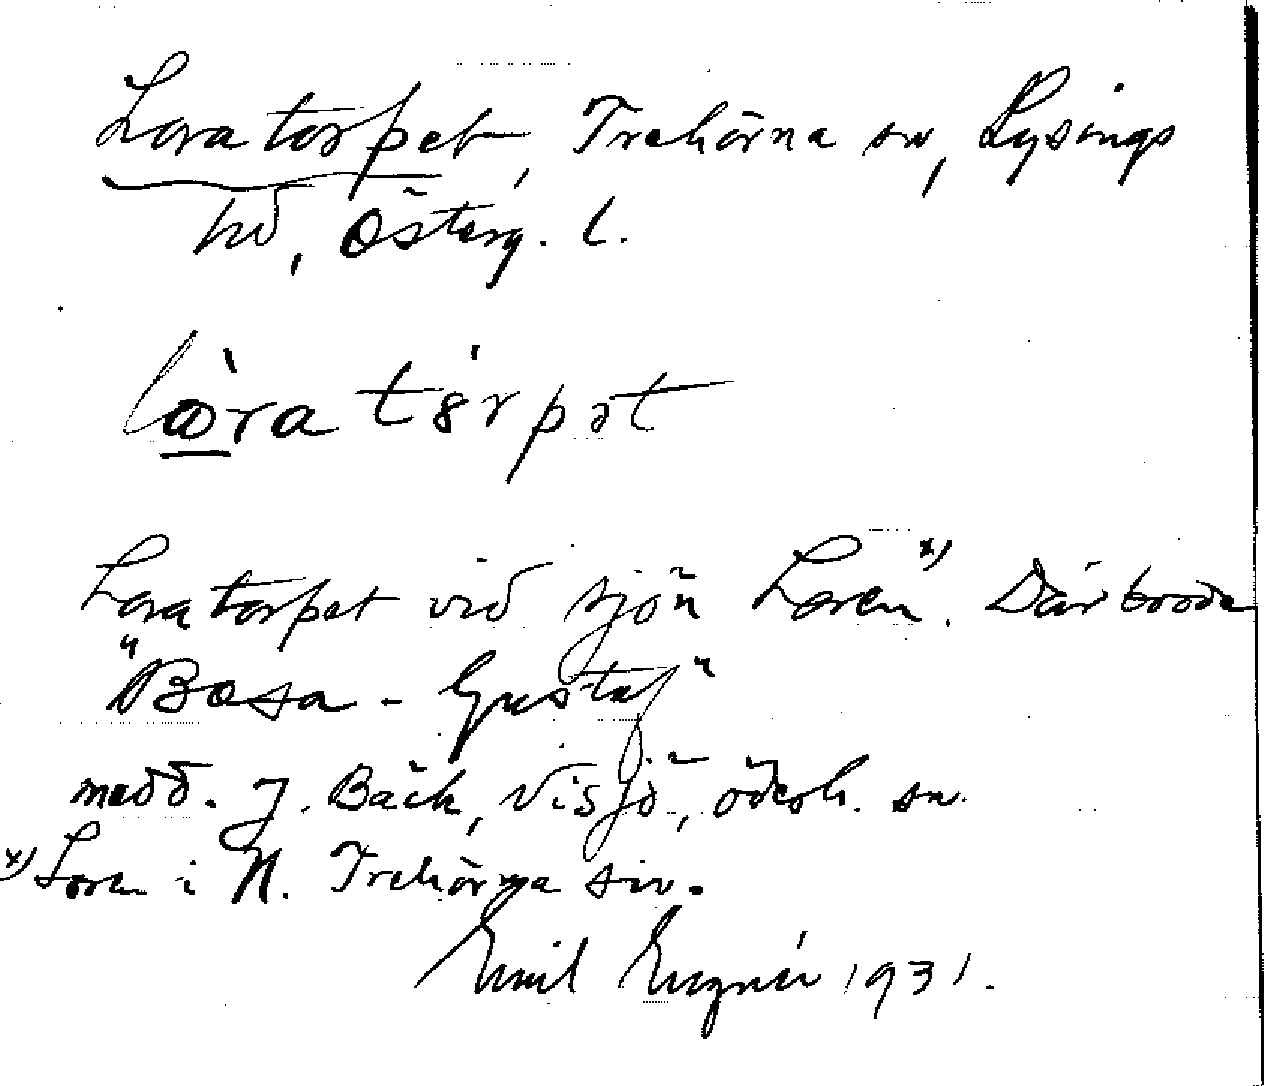 Loratorpet, Trehörna sn, Lysings
hd, Österg. l.
lòratórpət
Loratorpet vid sjön Loren x). Där bodde
"Bosa-Gustaf"
medd. J. Bäck, Visjö, ödesh. sn.
x) Loren i N. Trehörna sn.
Emil 1931.